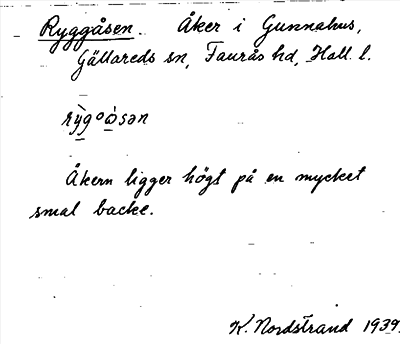 Ryggåsen. Åker i Gunnahus,
Gällareds sn, Faurås hd, Hall. l.
rỳgoòsən
Åkern ligger högt på en mycket
smal backe.
K. Nordstrand 1939.